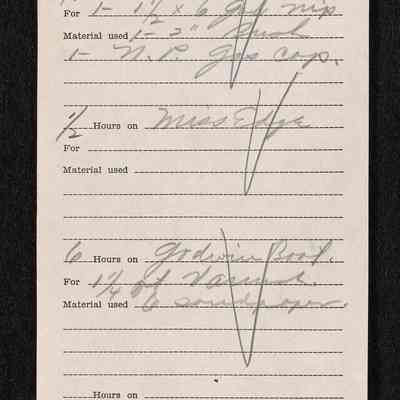 For 1- 1½ x 6 Gal nip
Material used 1- 2" Bush
1- N. P. Gas cap.
½ Hours on Miss Edge
For
Material used
6 Hours on Godwin Boat.
For 1¼ pt Varnish.
Material used 6 sandpaper.
Hours on